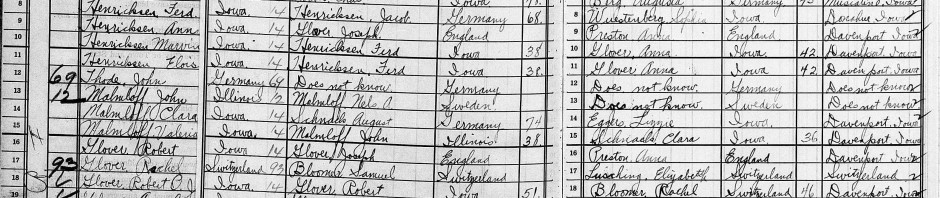 8 Henricksen Ferd. Iowa 14 Henricksen, Jacob Germany 68 8 Wuestenberg Sophia Iowa Donahue Iowa
9 Henricksen, Anna Iowa 14 Glover Joseph England 9 Preston Anna England Davenport Iowa
10 Henricksen Marvin Iowa 14 Henricksen Ferd Iowa 38 10 Glover, Anna Iowa 42 Davenport Iowa
11 Henricksen Flois Iowa 14 Henricksen, Ferd Iowa 38 11 Glover, Anna Iowa 42 Davenport, Iowa
69 12 Thode, John Germany 64 Does not know Germany 12 Does not know Germany Does not know
12 13 Malmloff John Illinois 2 Malmloff Nels A. Sweden 13 Does not know Sweden Does not know
14 Malmloff Clara Iowa 14 Schnaels August Germany 74 14 Eggers Lizzie Iowa Davenport, Iowa
15 Malmloff Valeria Iowa 4 Malmloff John Illinois 38 15 Schnaals, Clara Iowa 36 Davenport, Iowa
16 Glover Robert Iowa 14 Glover Joseph England 16 Preston Anna England Davenport Iowa
93 17 Glover Rachel Switzerland 93 Bloomer Samuel Switzerland 17 Elizabeth Switzerland Switzerland
18 Glover Robert O. J Iowa 14 Glover Robert Iowa 51 18 Bloomer Rachel Switzerland 46 Davenport, Iowa